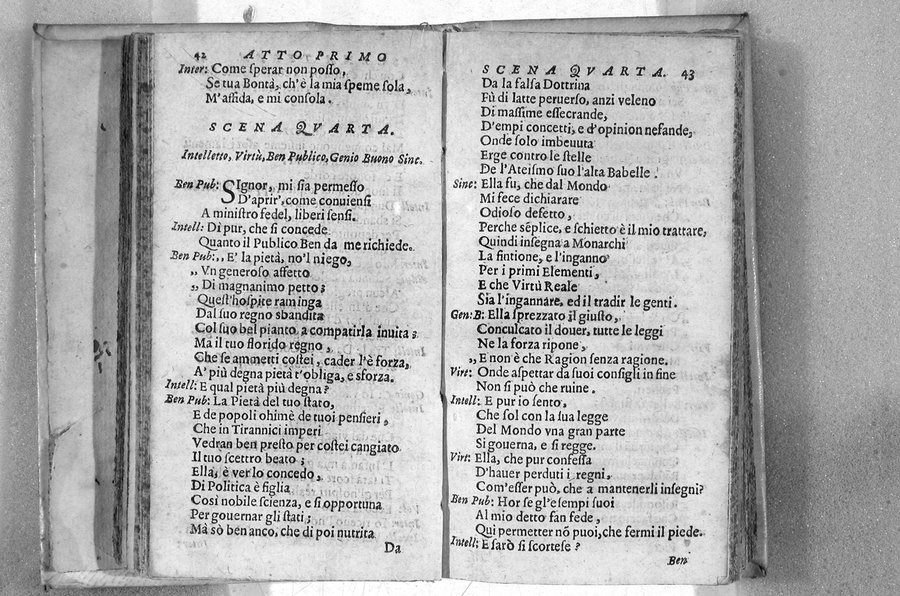 42 ATTO PRIMO
Inter: Come ſperar non poſſo,
Se tua Bontà, ch'è la mia ſpeme ſola,
M'affida, e mi conſola.
SCENA QVARTA.
Intelletto, Virtù, Ben Publico, Genio Buono Sinc.
Ben Pub: SIgnor, mi ſia permeſſo
D'aprir', come conuienſi
A miniſtro fedel, liberi ſenſi.
Intell: Di pur, che ſi concede
Quanto il Publico Ben da me richiede.
Ben Pub: ,, E' la pietà, no'l niego,
,, Vn generoſo affetto
,, Di magnanimo petto;
Queſt'hoſpite raminga
Dal ſuo regno sbandita
Col ſuo bel pianto a compatirla inuita;
Ma il tuo florido regno,
Che ſe ammetti coſtei, cader l'è forza,
A' più degna pietà t'obliga, e sforza.
Intell: E qual pietà più degna?
Ben Pub: La Pietà del tuo ſtato,
E de popoli ohimè de tuoi penſieri,
Che in Tirannici imperi
Vedran ben preſto per coſtei cangiato
Il tuo ſcettro beato;
Ella, è ver lo concedo,
Di Politica è figlia
Così nobile ſcienza, e ſi opportuna
Per gouernar gli ſtati;
Mà sò ben anco, che di poi nutrita
Da
SCENA QVARTA. 43
Da la falſa Dottrina
Fù di latte peruerſo, anzi veleno
Di maſſime eſſecrande,
D'empi concetti, e d'opinion nefande,
Onde ſolo imbeuuta
Erge contro le ſtelle
De l'Ateiſmo ſuo l'alta Babelle.
Sinc: Ella fu, che dal Mondo
Mi fece dichiarare
Odioſo defetto,
Perche sēplice, e ſchietto è il mio trattare,
Quindi inſegna a Monarchi
La fintione, e l'inganno
Per i primi Elementi,
E che Virtù Reale
Sia l'ingannare, ed il tradir le genti.
Gen: B: Ella ſprezzato il giuſto,
Conculcato il douer, tutte le leggi
Ne la forza ripone,
,, E non è che Ragion ſenza ragione.
Virt: Onde aſpettar da ſuoi conſigli in fine
Non ſi può che ruine.
Intell: E pur io ſento,
Che ſol con la ſua legge
Del Mondo vna gran parte
Si gouerna, e ſi regge.
Virt: Ella, che pur confeſſa
D'hauer perduti i regni,
Com'eſſer può, che a mantenerli inſegni?
Ben Pub: Hor ſe gl'eſempi ſuoi
Al mio detto fan fede,
Qui permetter nō puoi, che fermi il piede.
Intell: E ſarò ſi ſcorteſe?
Ben